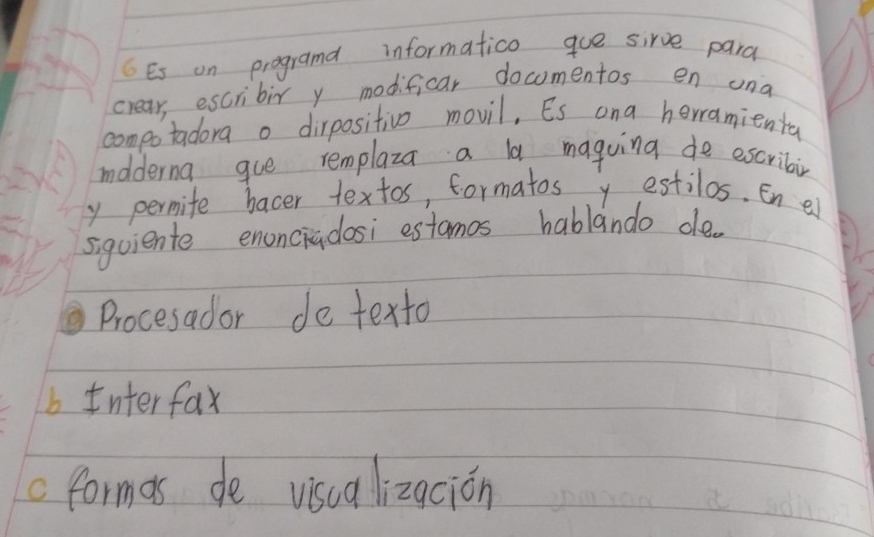 6 Es un programa informatico que sirve para
crear, escribir y modificar documentos en una
compotadora o dirpositivo movil. Es una herramienta
mdderna que remplaza a la maquina de escribir
y permite hacer textos, formatos y estilos. En el
siguiente enunciadosi estamos hablando de..
a Procesador de texto
b Interfax
c formas de visualización